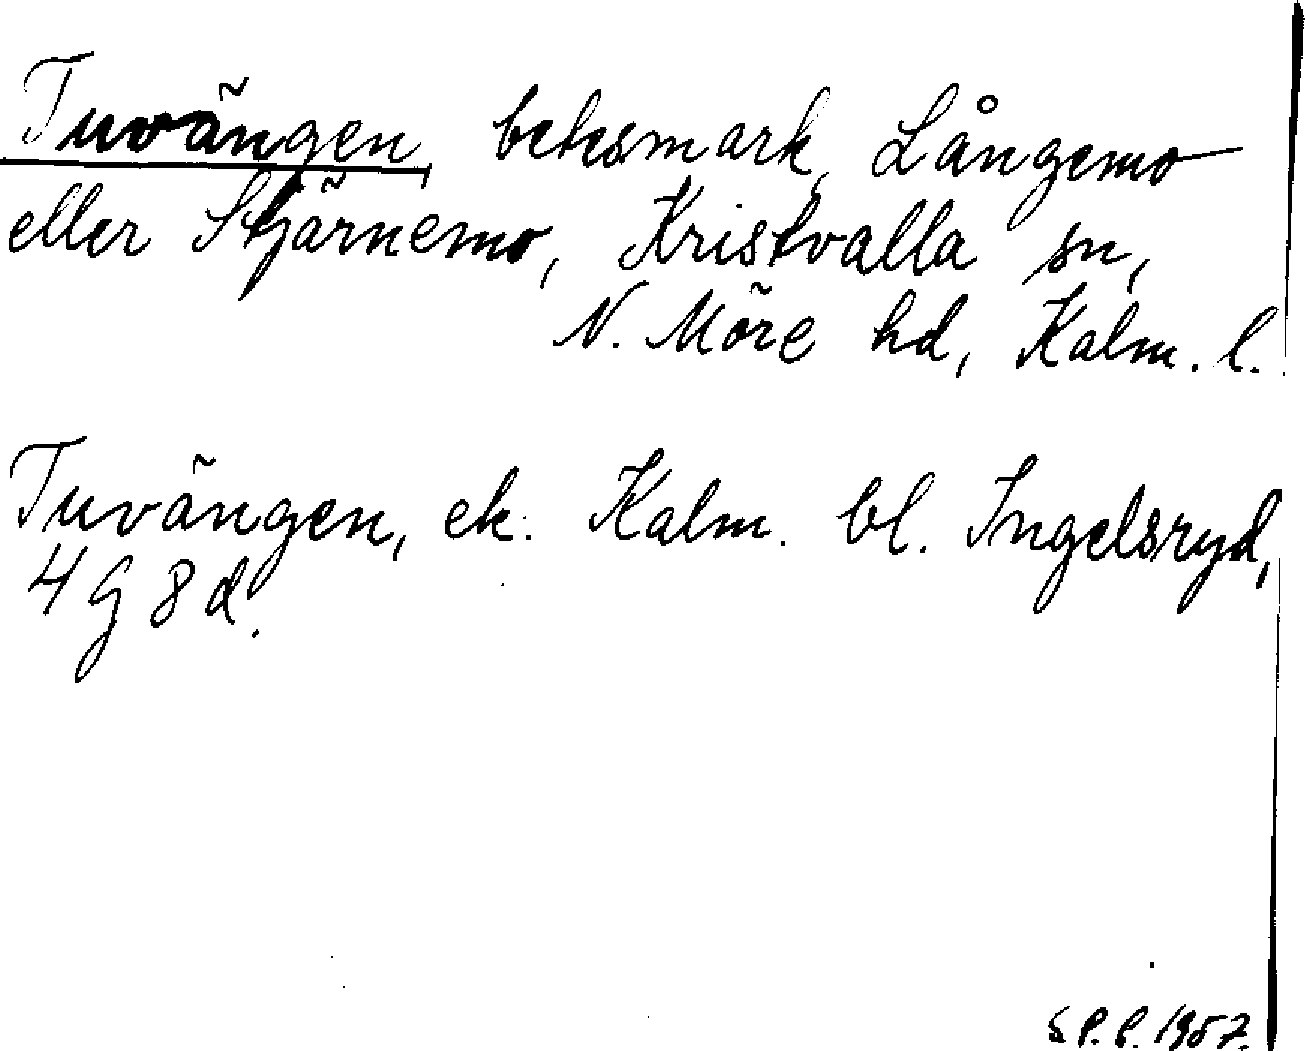 Tuvängen, betesmark, Långemo
eller Stjärnemo, Kristvalla sn,
N. Möre hd, Kalm. l.
Tuvängen, ek. Kalm. bl. Ingelsryd,
4 G 8 d.
S.P.P. 1957.